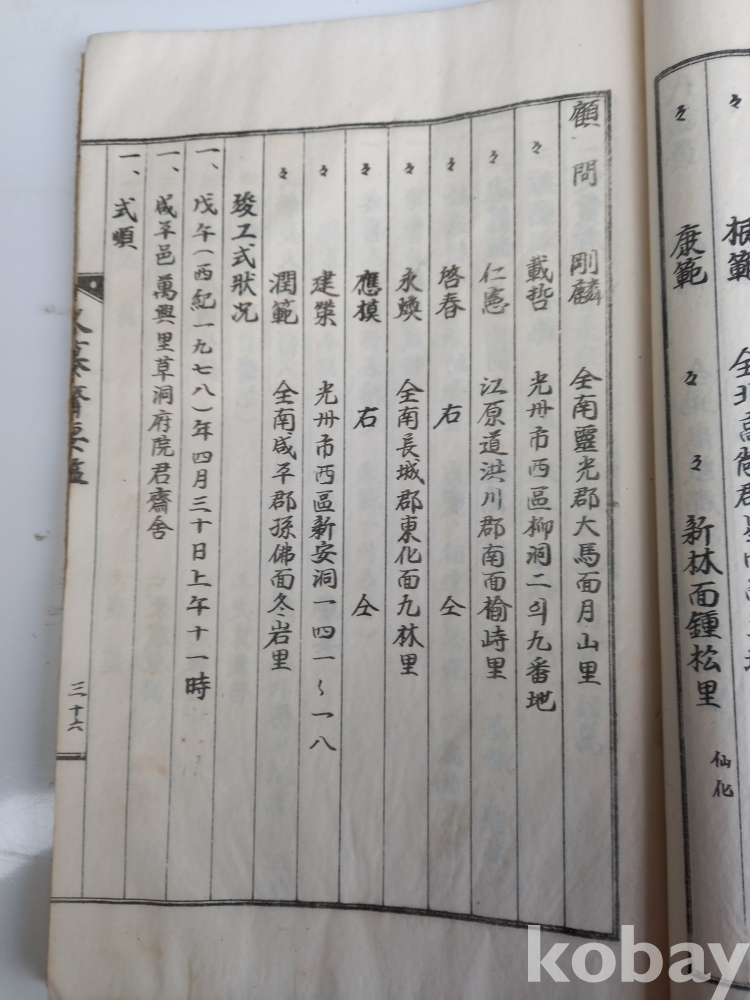 々 根範
々 康範 々 々 新林面鍾松里
仙化
顧問 剛麟 全南靈光郡大馬面月山里
々 載哲 光州市西區柳洞二의九番地
々 仁憲 江原道洪川郡南面楡峙里
々 啓春 右 仝
々 永煥 全南長城郡東化面九林里
々 應模 右 仝
々 建榮 光州市西區新安洞一四一~一八
々 潤範 全南咸平郡孫佛面冬岩里
竣工式狀况
一、戊午(西紀一九七八)年四月三十日上午十一時
一、咸平邑萬興里草洞府院君齋舍
一、式順
三十六
kobay